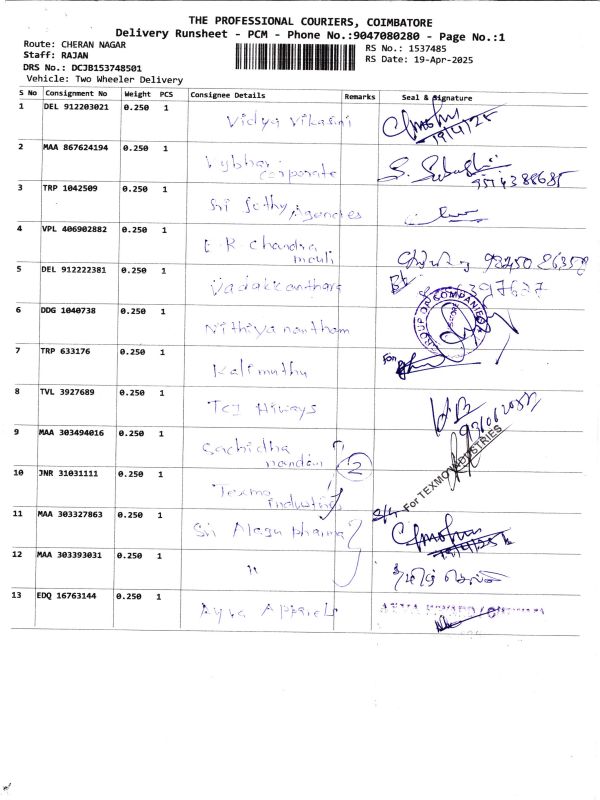 THE PROFESSIONAL COURIERS, COIMBATORE
Delivery Runsheet - PCM - Phone No.:9047080280 - Page No.:1
Route: CHERAN NAGAR
RS No.: 1537485
Staff: RAJAN
RS Date: 19-Apr-2025
DRS No.: DCJB153748501
Vehicle: Two Wheeler Delivery
S No Consignment No Weight PCS Consignee Details Remarks Seal & Signature
1 DEL 912203021 0.250 1 Vidya Vikasini
19/4/25
2 MAA 867624194 0.250 1 Vybhav
corporate
3 TRP 1042509 0.250 1 Sri Sethy Agencies
4 VPL 406902882 0.250 1 E.R Chandra
mouli
5 DEL 912222381 0.250 1 Vadakkanthara
6 DDG 1040738 0.250 1 Nithiyanantham
GROUP OF COMPANIES
7 TRP 633176 0.250 1 Kalimuthu
For
8 TVL 3927689 0.250 1 TCI Hiways
9 MAA 303494016 0.250 1 Sachidha
nandam
2
10 JNR 31031111 0.250 1 Texmo
industries
For TEXMO INDUSTRIES
11 MAA 303327863 0.250 1 Sri Alagu pharma
12 MAA 303393031 0.250 1 "
13 EDQ 16763144 0.250 1 Ayra Apparels